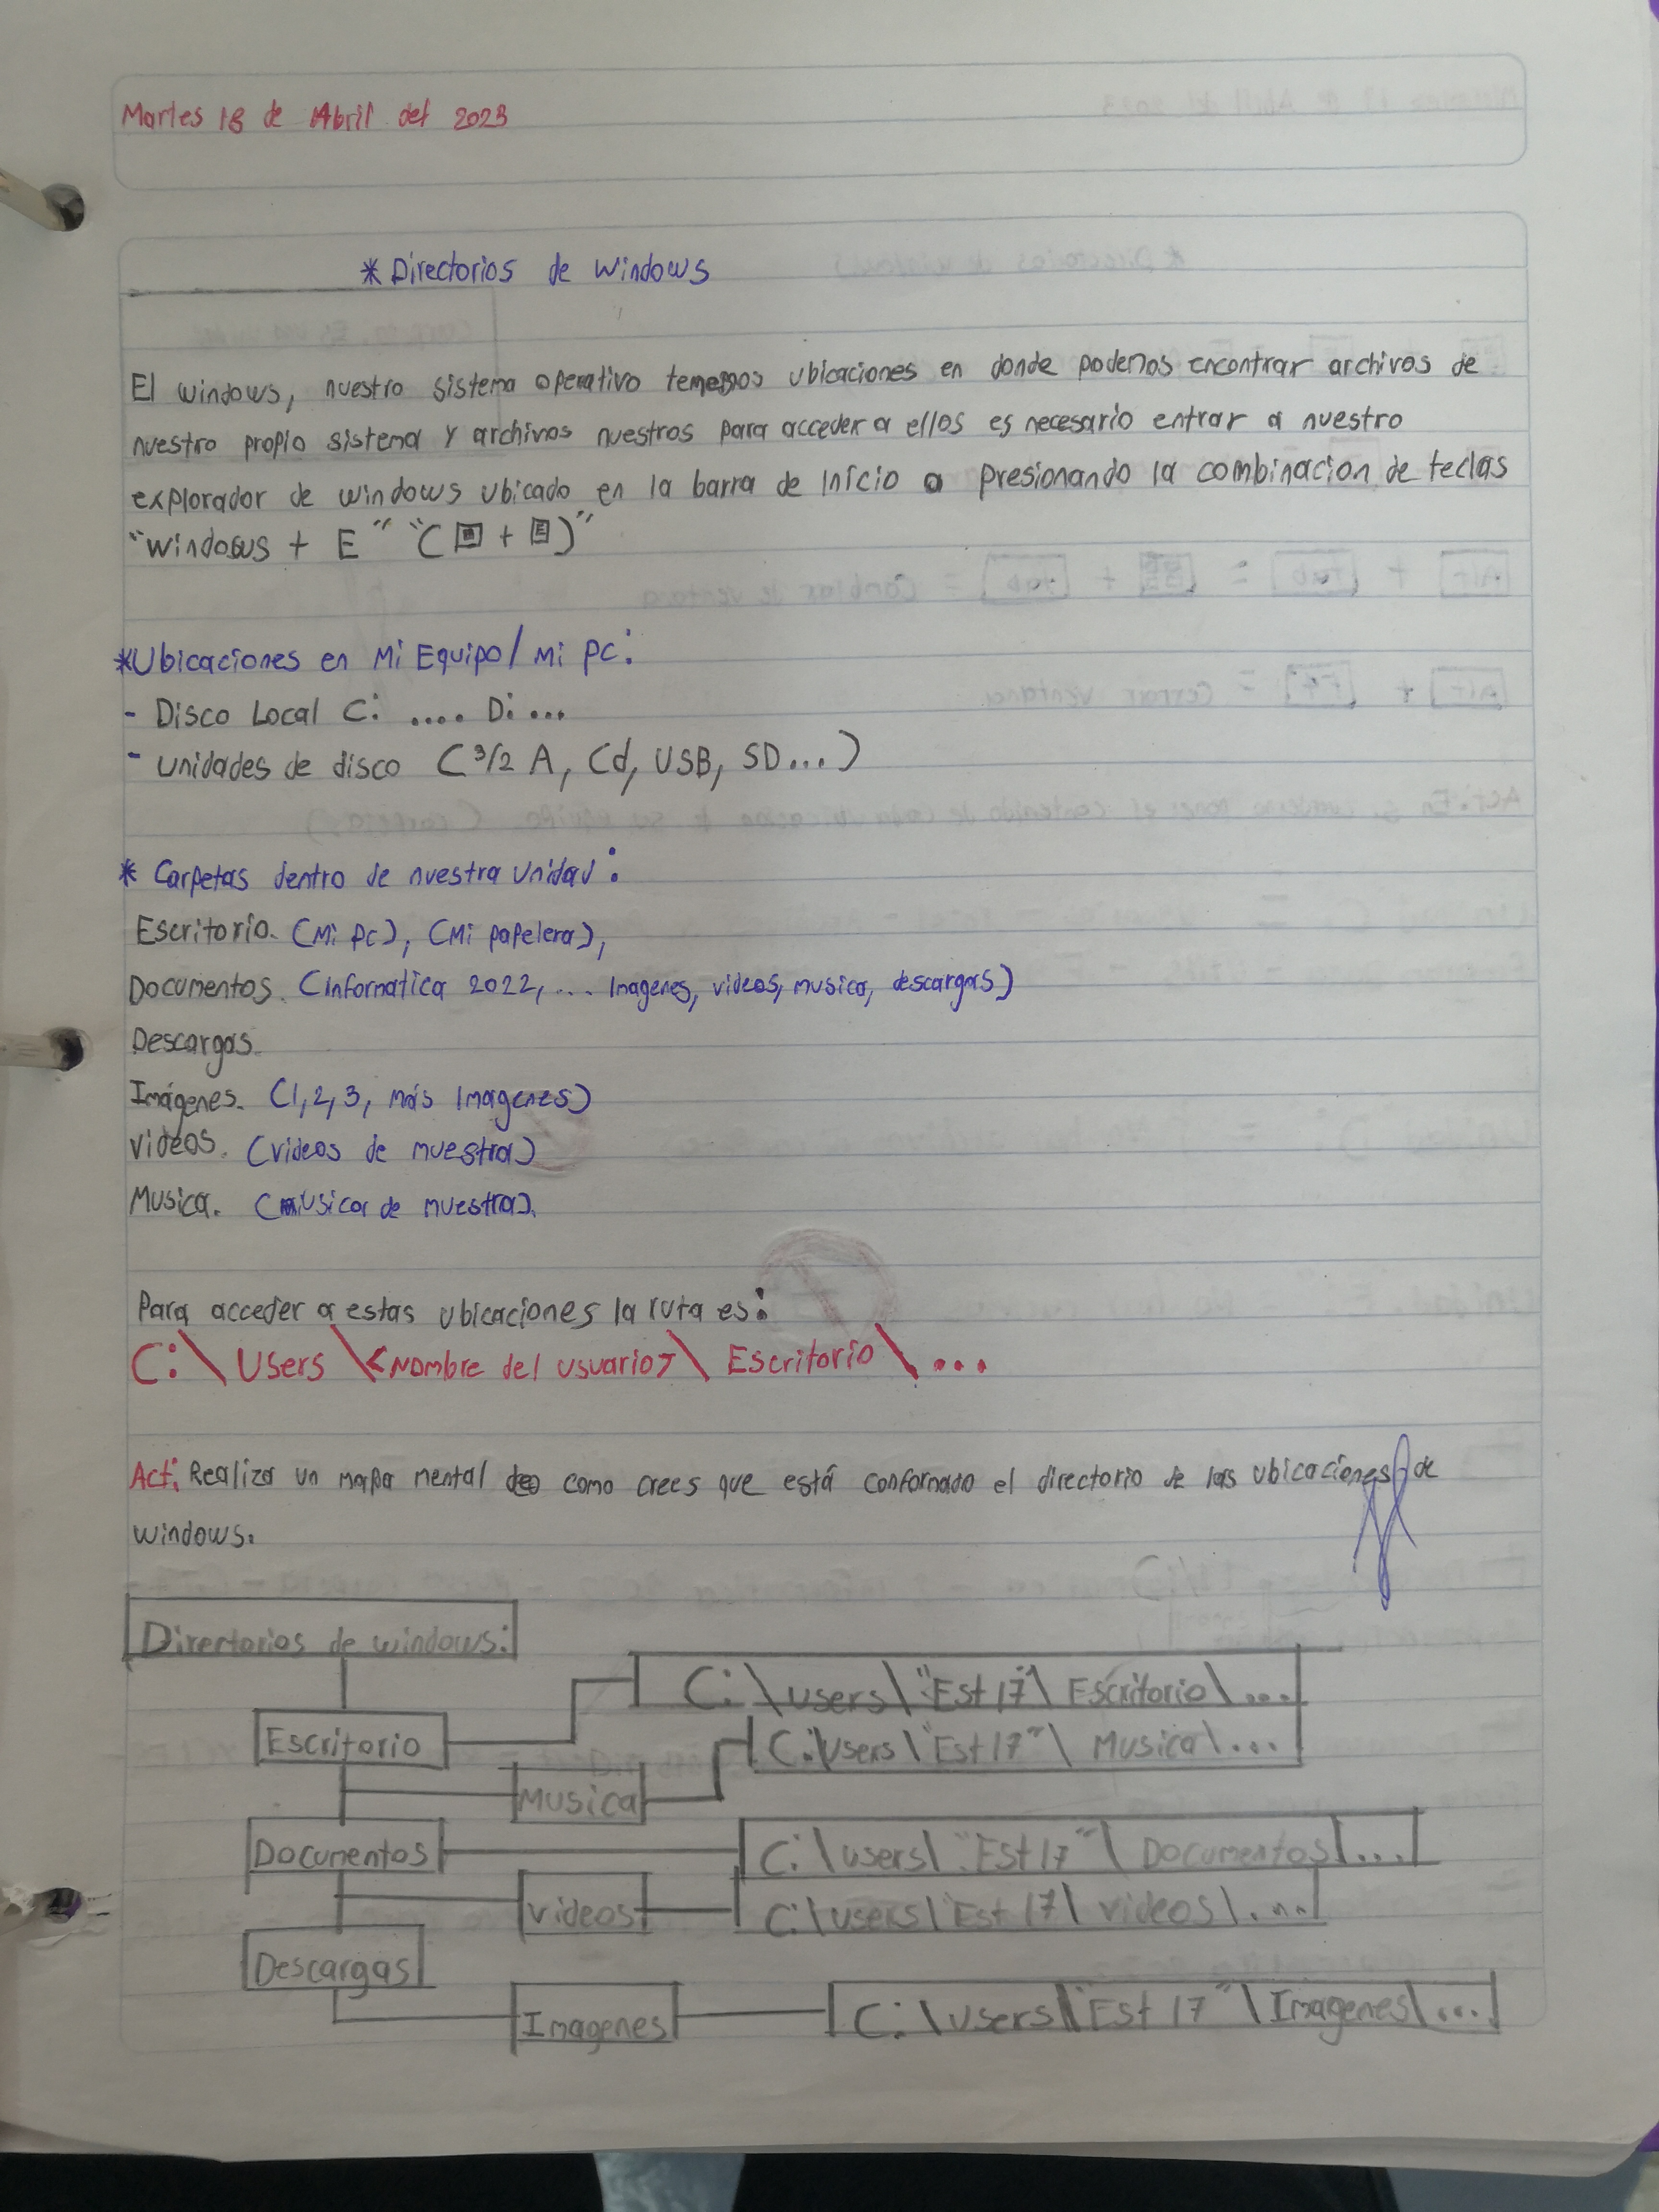 Martes 18 de Abril del 2023
* Directorios de Windows
El windows, nuestro sistema operativo tenemos ubicaciones en donde podemos encontrar archivos de
nuestro propio sistema y archivos nuestros para acceder a ellos es necesario entrar a nuestro
explorador de windows ubicado en la barra de inicio o presionando la combinacion de teclas
"windows + E" "( + E)"
*Ubicaciones en Mi Equipo/ Mi PC:
- Disco Local C: .... D: ...
- unidades de disco (3/2 A, Cd, USB, SD...)
* Carpetas dentro de nuestra Unidad:
Escritorio. (Mi PC), (Mi papelera),
Documentos. (informatica 2022, ... Imagenes, videos, musica, descargas)
Descargas.
Imágenes. (1, 2, 3, más Imagenes)
videos. (videos de muestra)
Musica. (musica de muestra).
Para acceder a estas ubicaciones la ruta es:
C:\ Users \<Nombre del usuario>\ Escritorio\ ...
Act: Realiza un mapa mental de como crees que está conformado el directorio de las ubicaciones de
windows.
Directorios de windows:
C:\users\"Est 17"\ Escritorio\...
Escritorio
C:\users\"Est 17"\ Musica\...
Musica
Documentos
C:\users\"Est 17"\ Documentos\...
videos
C:\users\"Est 17\ videos\...
Descargas
Imagenes
C:\users\"Est 17"\Imagenes\...